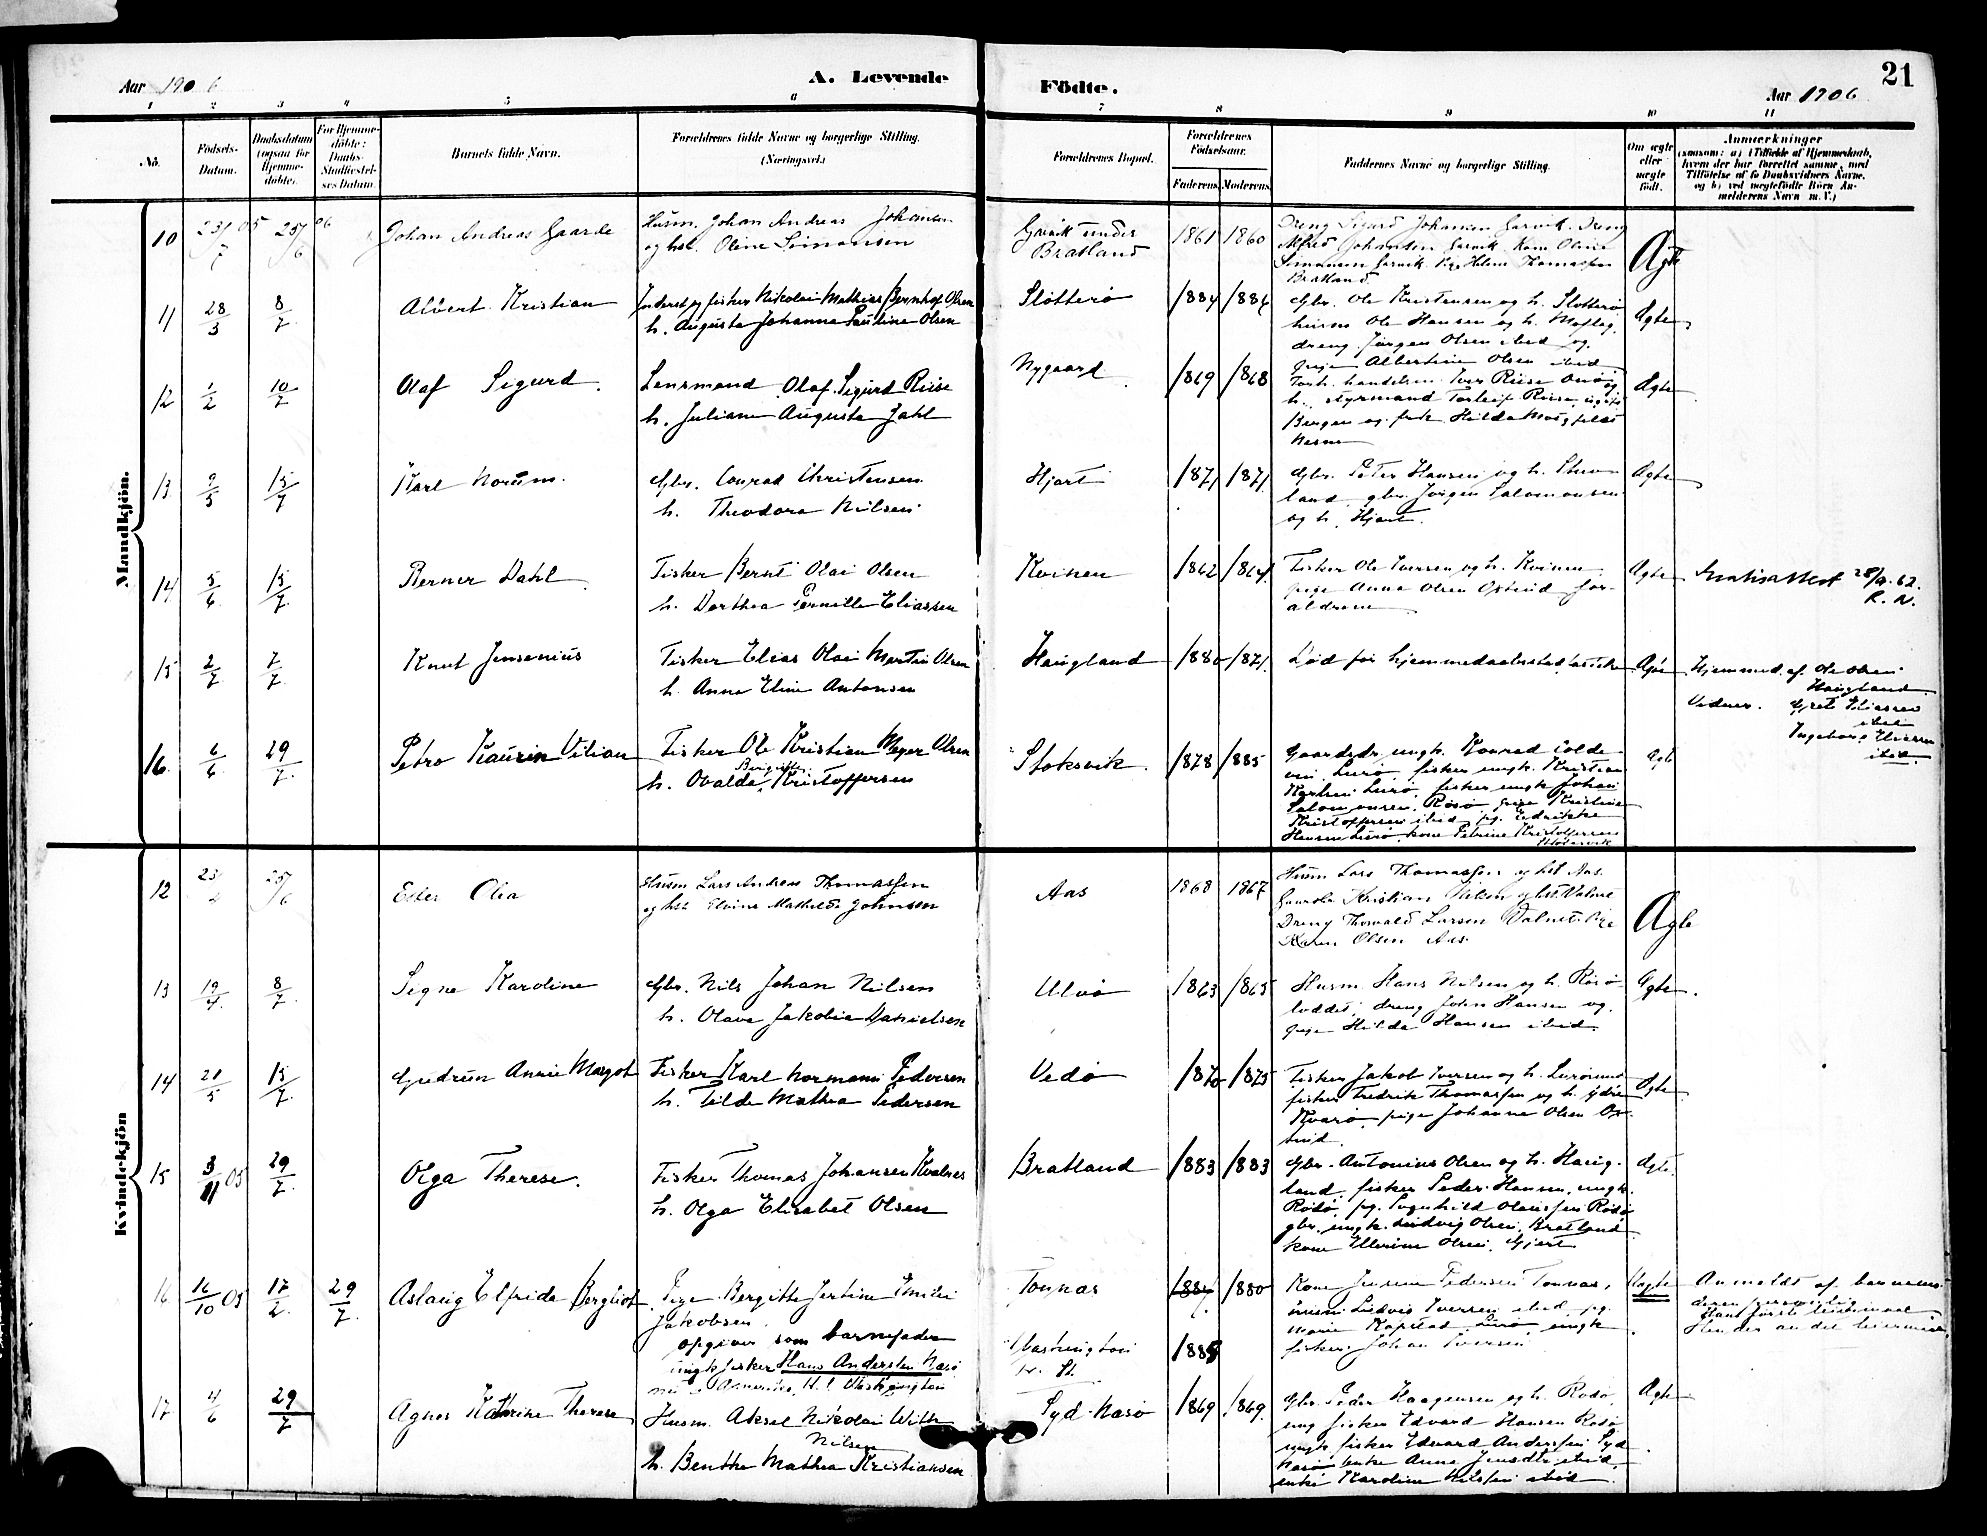 21
Aar 1906
A. Levende
Födte.
Aar 1906
1 2 3 4 5 6 7 8 9 10 11
No.
Födsels-Datum.
Daabsdatum (ogsaa for Hjemmedöbte).
For Hjemmedöbte: Daabs-Stadfæstelses Datum.
Barnets fulde Navn.
Forældrenes fulde Navne og borgerlige Stilling. (Næringsvei.)
Forældrenes Bopæl.
Forældrenes Födselsaar.
Faderens. Moderens.
Faddernes Navne og borgerlige Stilling.
Om ægte eller uægte födt.
Anmærkninger
(saasom: a) i Tilfælde af Hjemmedaab,
hvem der har forrettet samme, med
Tilföielse af to Daabsvidners Navne.
og b) ved uægtefödte Börn An-
melderens Navn m. V.)
Mandkjön.
10 23/7 05 25/6 06 Johan Andreas Gaarde
Husm. Johan Andreas Johansen
og hst. Oline Simonsen
Garvik under
Bratland
1861 1860
Dreng Sigurd Johansen Garvik. Dreng
Alfred Johansen Garvik. Kone Oline
Simonsen Garvik. Pige Helene Thomassen
Bratland
Ægte
11 28/3 8/7 Albert Kristian
Inderst og fisker Nikolai Mathias Bernhof Olsen
h. Augusta Johanna Pauline Olsen
Slotterø
1884 1886
Gbr. Ole Kristensen og h. Slotterø
husm Ole Hansen og h.
dreng Jørgen Olsen ibid og
pige Albertine Olsen ibid.
Ægte
12 1/2 10/7 Olaf Sigurd.
Lensmand Olaf Sigurd Riise
h. Juliane Augusta Jahl
Nygaard
1869 1868
h. styrmand Torleif Riise
Bergen og frk. Hilda
Nesne
Ægte
13 9/5 15/7 Karl Norum.
Gbr. Conrad Christensen
h. Theodora Nilsen
Hjart
1871 1871
Gbr. Peter Hansen og h. Stuv-
land gbr. Jørgen Salomonsen
og h. Hjart.
Ægte
14 5/6 15/7 Berner Dahl
Fisker Bernt Olai Olsen
h. Dorthea Pernille Eliassen
Kvinen
1862 1864
Fisker Ole Iversen og h. Kvinen
pige Anna Olsen for-
ældrene
Ægte
Gratisattest 28/9.62.
R. N.
15 2/7 7/7 Knut Jensenius
Fisker Elias Olai Martin Olsen
h. Anna Eline Antonsen
Haugland
1880 1871.
Død før hjemmedaabstadfæstelse
Ægte
Hjemmed. af Ole Olsen
Haugland.
Vidner. Grete Eliassen
ibid
Ingeborg Eliassen
ibid.
16. 6/6 29/7 Petro Kaurin Vilian
Fisker Ole Kristian Meyer Olsen
Bergitte
h. Ovalda, Kristoffersen
Stoksvik.
1878 1885
Gaardsbr. ungk. Konrad
Lurø, fisker ungk. Kristian
Lurø, fisker ungk Johan
Salomonsen, Rosø pige Kristine
Kristoffersen ibid pg. Fredrikke
Hansen Lurø, kone Petrine Kristoffersen
Stoksvik
Ægte
Kvindekjön
12 25/6 Ester Olea
Husm Lars Andreas Thomassen
og hst. Elvine Mathilde Johnsen
Aas
1868 1867
Husm Lars Thomassen og hst Aas.
Kristian Nilsen og hst Valnes
Dreng Thorvald Larsen Valnes. Pige
Karen Olsen Aas.
Ægte
13 19/4. 8/7. Signe Karoline
Gbr. Nils Johan Nilsen
h. Olava Jakobia Danielsen
Ulvø
1863 1865
Husm. Hans Nilsen og h. Rosø
loddet, dreng John Hansen og
pige Hilda Hansen ibid.
Ægte.
14 21/5 15/7. Gudrun Annie Margot
Fisker Karl Normann Pedersen
h. Tilde Mathea Pedersen
Vedø
1870 1875
Fisker Jakob Iversen og h. Lurøsund
fisker Fredrik Thomassen og h. Ydre
Kvarø, pige Johanna Olsen
Ægte
15 3/11 05 29/7. Olga Therese.
Fisker Thomas Johansen Kvalnes
h. Olga Elisabet Olsen
Bratland
1883 1883
Gbr. Antonius Olsen og h. Haug-
land, fisker Peder Hansen, ungk.
Rosø, pg. Ragnhild Olaussen Rosø
gbr. ungk. Ludvig Olsen, Bratland
kone Ellerine Olsen, Hjart
Ægte
16 16/10 05 17/2. 29/7. Aslaug Elfrida Bergliot
Pige Bergitte Jertine Emilie
Jakobsen.
opgiver som barnefader
ungk fisker Hans Andersen Næsø
nu i Amerika, Washington
Tonnes
Washington
St.
1884 1880
1885
Kone Jensine Pedersen Tonnes,
husm Ludvig Iversen ibid, pg.
Marie Kopstad, Lurø, ungk
fisker Johan Iversen
Uægte
Anmeldt af barnemo-
deren personlig
Hans første leiermaal
Hendes andet leiermaal
17 4/6 29/7 Agnes Katrine Therese
Husm. Aksel Nikolai With
Nilsen
h. Benthe Mathea Kristiansen
Syd-Næsø
1869 1869.
Gbr. Peder Haagensen og h. Rosø,
ung fisker Edvard Hansen Rosø
ungk. fisker Edvard Anderssen Syd
Næsø enke Anna ibid,
enke Karoline Nilssen ibid.
Ægte